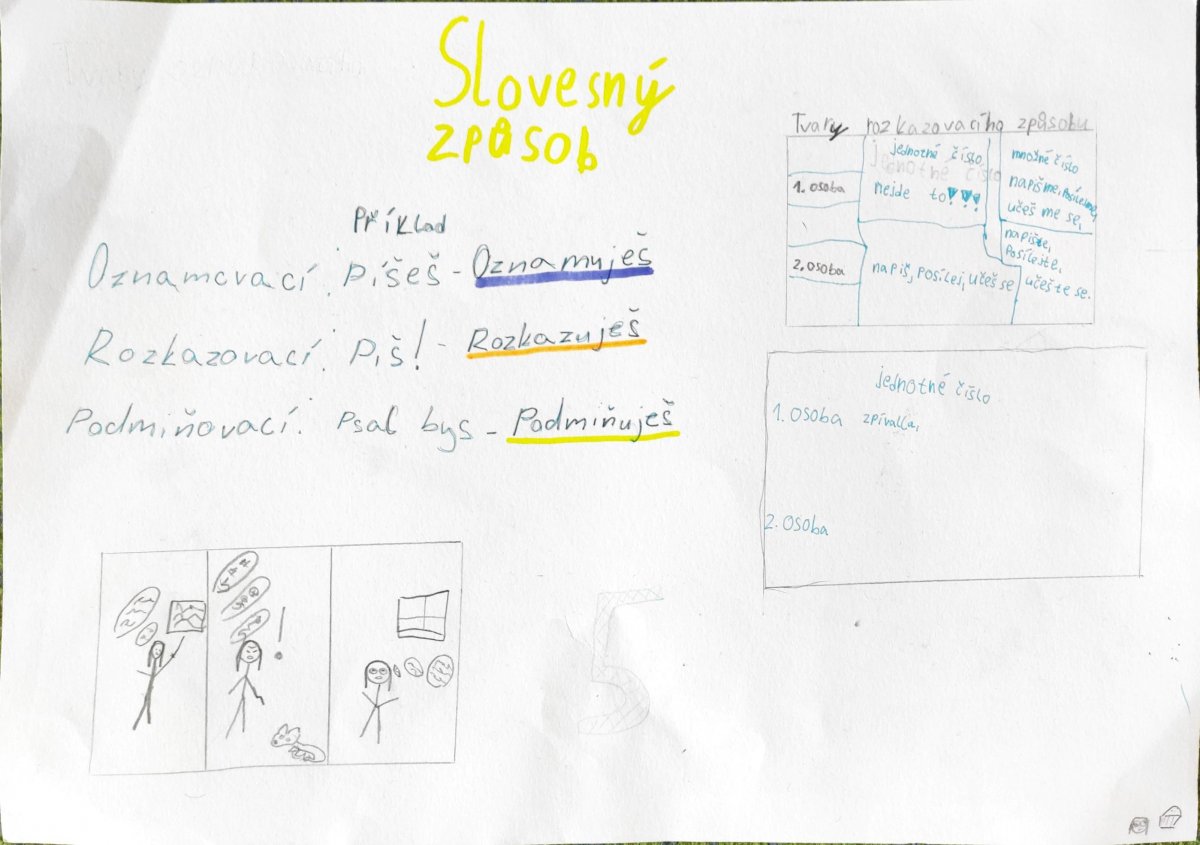 Slovesný
způsob
Příklad
Oznamovací: Píšeš - Oznamuješ
Rozkazovací: Piš! - Rozkazuješ
Podmiňovací: Psal bys - Podmiňuješ
Tvary rozkazovacího způsobu
jednotné číslo
množné číslo
jednotné číslo
1. osoba
nejde to!!!
napišme, posílejme,
učeš me se,
2. osoba
napiš, posílej, učeš se
napište,
Posílejte,
učešte se.
jednotné číslo
1. osoba zpíval/a,
2. osoba
5